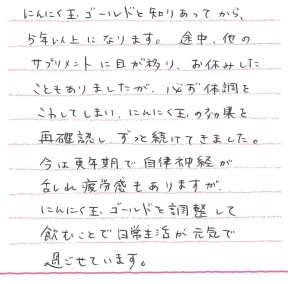 にんにく玉ゴールドと知りあってから、
5年以上になります。 途中、他の
サプリメントに目が移り、お休みした
こともありましたが、必ず体調を
こわしてしまい、にんにく玉の効果を
再確認し、ずっと続けてきました。
今は更年期で自律神経が
乱れ疲労感もありますが、
にんにく玉ゴールドと調整して
飲むことで日常生活が元気で
過ごせています。